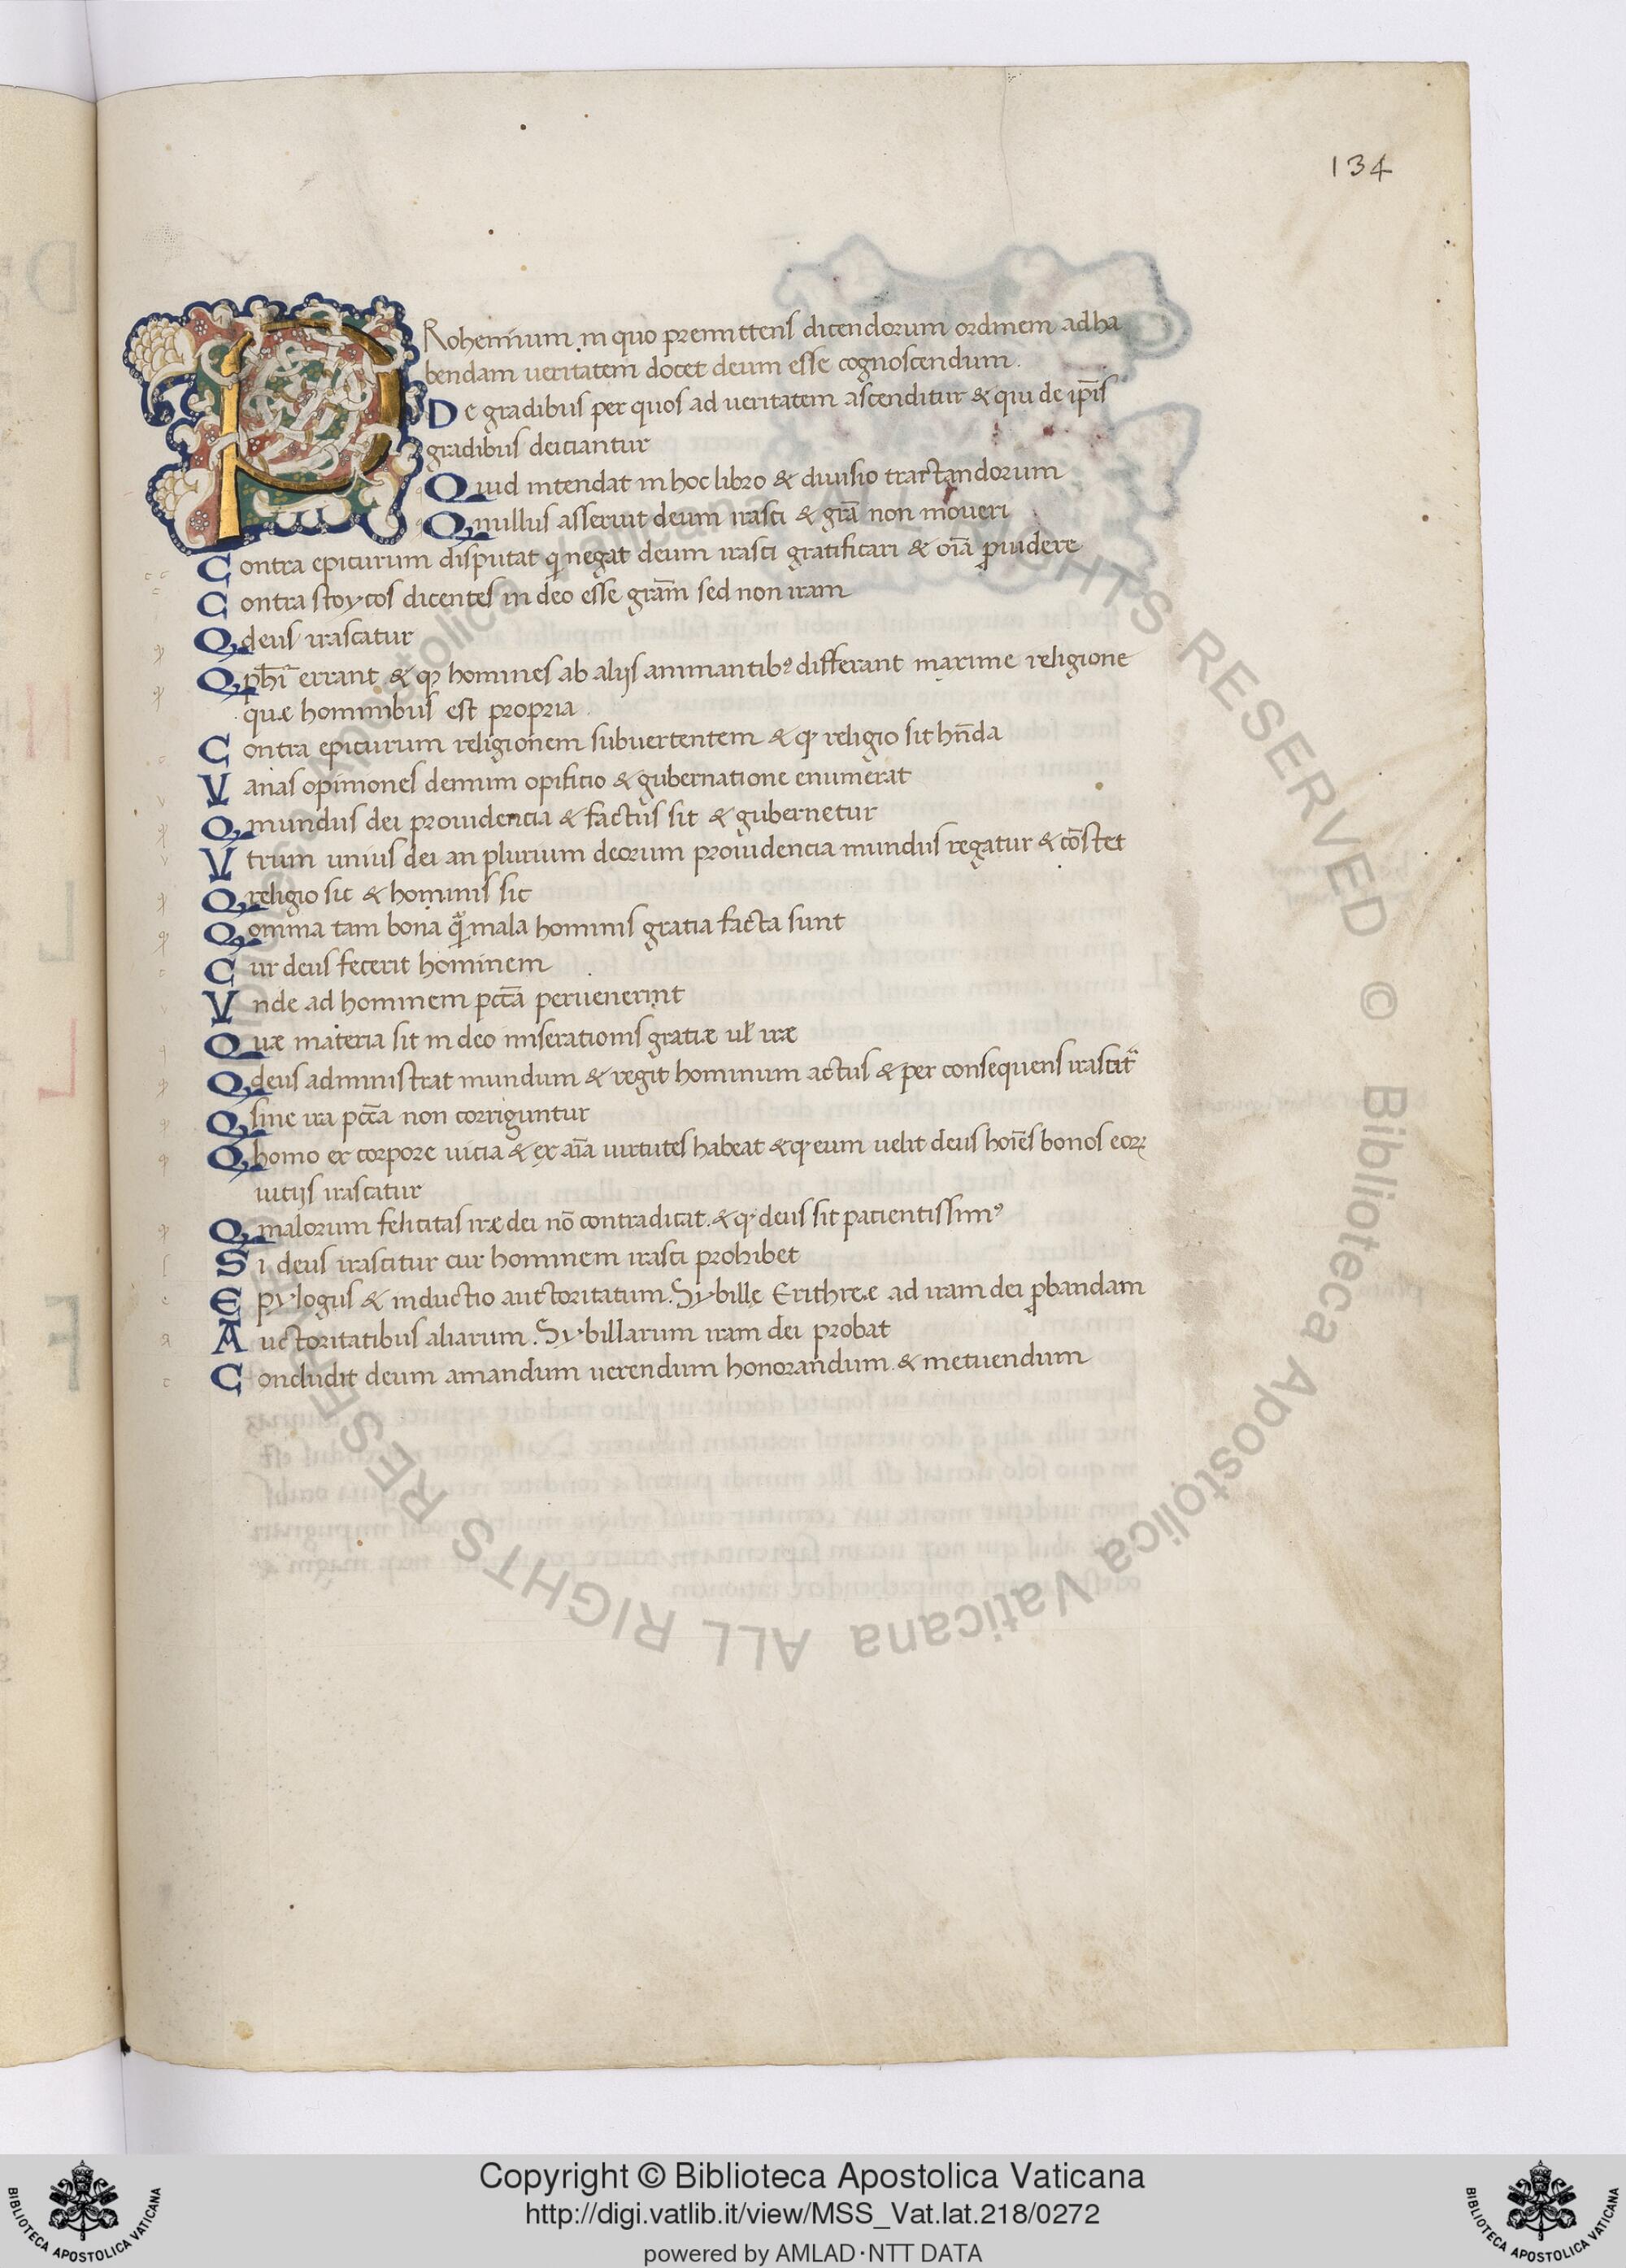 134
PRohemium in quo premittens dicendorum ordinem ad ha
bendam ueritatem docet deum esse cognoscendum.
De gradibus per quos ad ueritatem ascenditur & qui de ip̄is
gradibus deiciantur
Quid intendat in hoc libro & diuisio tractandorum
Q nullus asseruit deum irasci & gr̄a non moueri
Contra epicurum disputat qi negat deum irasci gratificari & oīa ꝓuidere
Contra stoycos dicentes in deo esse gram̄ sed non iram
Q deus irascatur
Q phī errant & ꝙ homines ab alijs animantibꝰ differant maxime religione
quæ hominibus est propria
Contra epicurum religionem subuertentem & ꝙ religio sit hn̄da
Varias opiniones de mundi opificio & gubernatione enumerat
Q mundus dei prouidencia & factus sit & gubernetur
Vtrum unius dei an plurium deorum prouidencia mundus regatur & cōstet
Q religio sit & hominis sit
Q omnia tam bona q̄ mala hominis gratia facta sunt
Cur deus fecerit hominem
Vnde ad hominem pctā peruenerint
Quæ materia sit in deo miserationis gratiæ ul' iræ
Q deus administrat mundum & regit hominum actus & per consequens irascit᷑
Q sine ira pctā non corriguntur
Q homo ex corpore uicia & ex aīa uirtutes habeat & ꝙ cum uelit deus hoīes bonos eoꝝ
uicijs irascatur
Q malorum felicitas iræ dei nō contradicat. & ꝙ deus sit pacientissimꝰ
Si deus irascitur cur hominem irasci prohibet
Epylogus & inductio auctoritatum. Sybille Erithreæ ad iram dei ꝓbandam
Auctoritatibus aliarum. Sybillarum iram dei probat
Concludit deum amandum uerendum honorandum & metuendum
Biblioteca Apostolica Vaticana ALL RIGHTS RESERVED ©
Copyright © Biblioteca Apostolica Vaticana
http://digi.vatlib.it/view/MSS_Vat.lat.218/0272
powered by AMLAD·NTT DATA
BIBLIOTECA APOSTOLICA VATICANA
BIBLIOTECA APOSTOLICA VATICANA